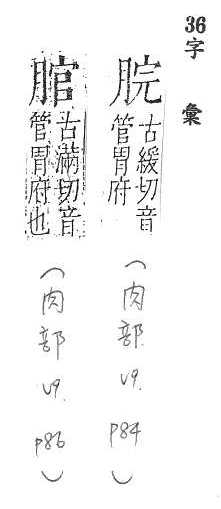 36字彙
脘 古緩切音管胃府
(肉部 19. P84)
腯 古滿切音管胃府也
(肉部 19. P86)